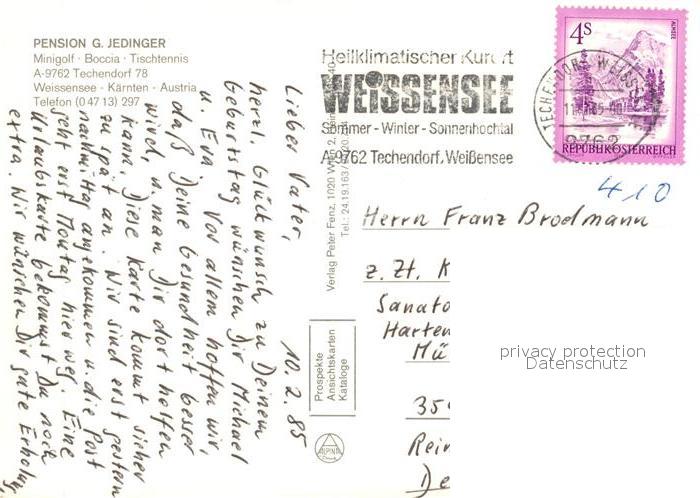 PENSION G. JEDINGER
Minigolf · Boccia · Tischtennis
A-9762 Techendorf 78
Weissensee - Kärnten - Austria
Telefon (0 47 13) 297
10.2.85
Lieber Vater,
herzl. Glückwunsch zu Deinem
Geburtstag wünschen Dir Michael
u. Eva. Vor allem hoffen wir,
daß Deine Gesundheit besser
wird, u. man Dir dort helfen
kann. Diese Karte kommt sicher
zu spät an. Wir sind erst gestern
nachmittag angekommen u. die Post
geht erst Montag hier weg. Eine
Urlaubskarte bekommst Du noch
extra. Wir wünschen Dir gute Erholung
Verlag Peter Fenz, 1020 Wien 2,
Tel.: 24.19.163/
Prospekte
Ansichtskarten
Kataloge
ALPINA
Druck
Heilklimatischer Kurort
WEISSENSEE
Sommer - Winter - Sonnenhochtal
A-9762 Techendorf, Weißensee
TECHENDORF, WEISS
9762
4 S
ALMSEE
REPUBLIK ÖSTERREICH
410
Herrn Franz Brodmann
z. Zt. K
Sanato
Harten
Mü
35
Rein
De
privacy protection
Datenschutz